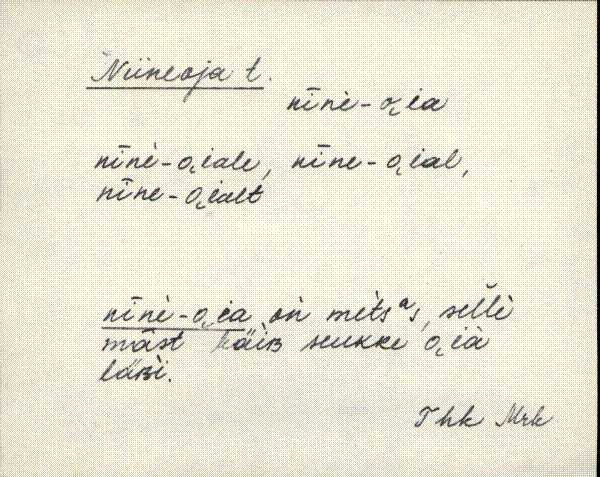 Niineoja t.
nīnè-o̯i̯a
nīnè-o̯i̯ale, nīne-o̯i̯al,
nīne-o̯i̯alt
nīnè-o̯i̯a oǹ mètsᵃs, sèl̆l̆è
māst käiʙ seukke o̯i̯ä
läʙì.
Thk Mrk